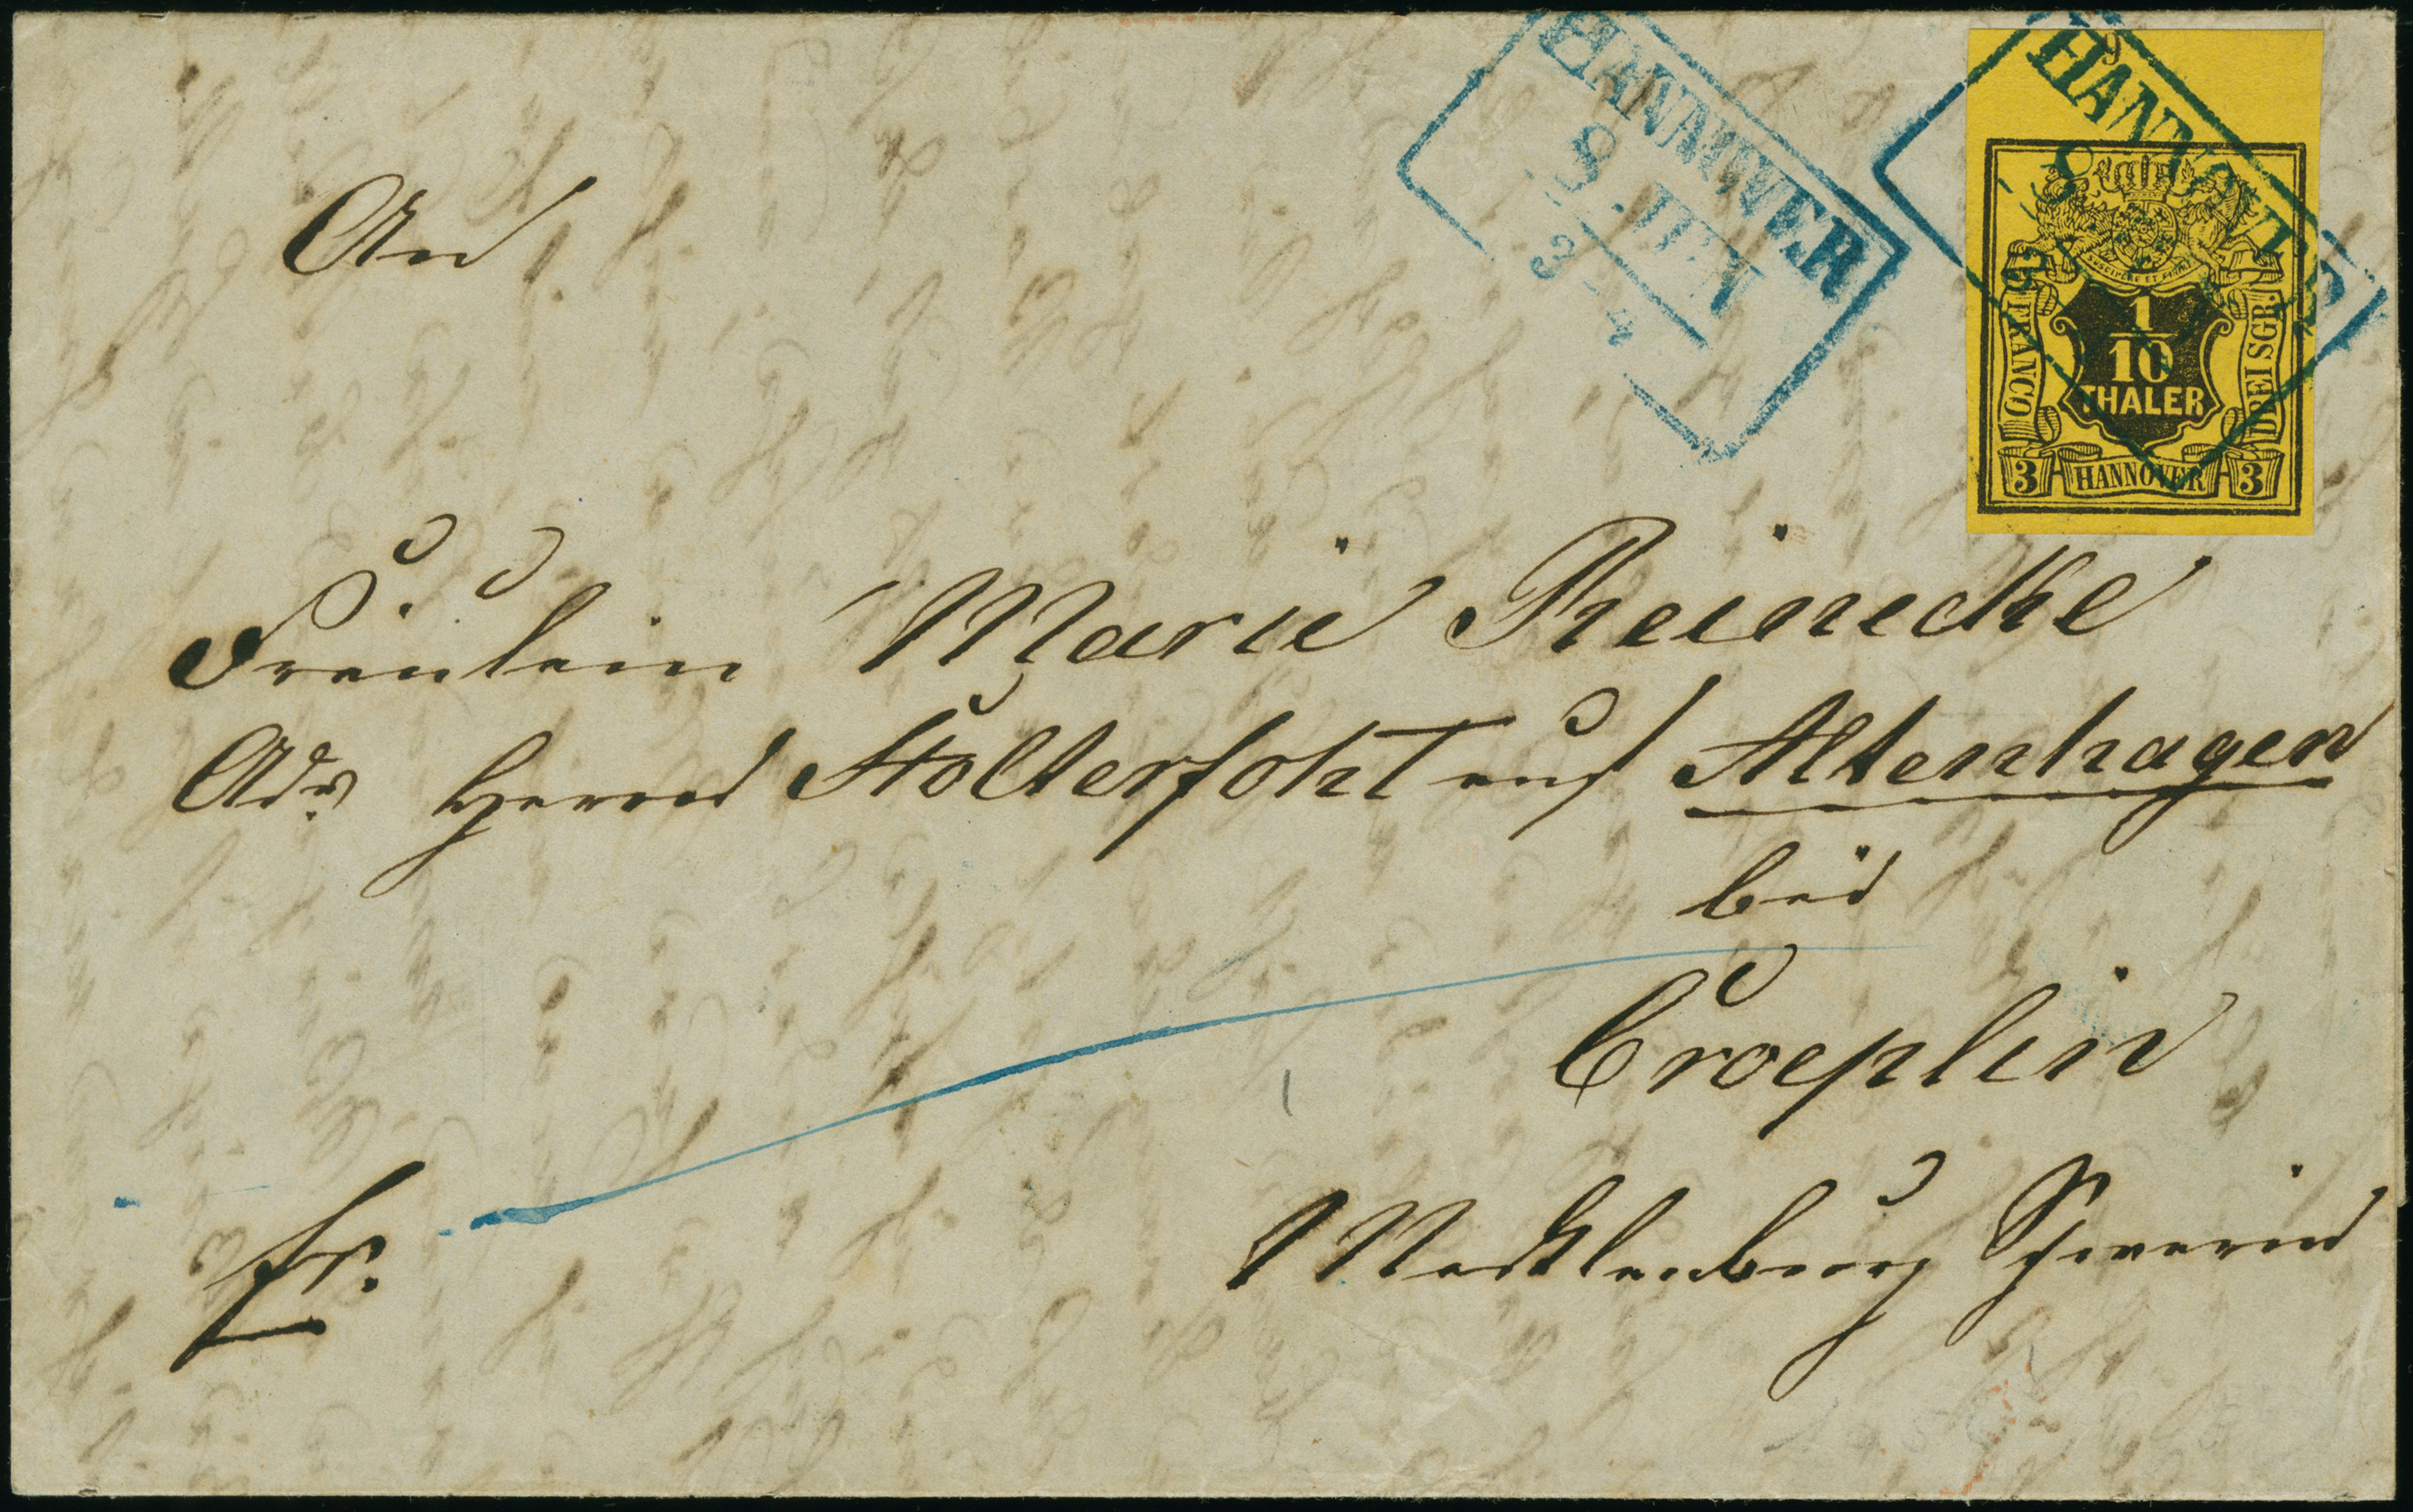 HANNOVER
9 JUN
3-4
HANNOVER
9
SUSCIPERE ET FINIRE
FRANCO
1/10
THALER
DREI SGR.
3 HANNOVER 3
An
Fräulein Marie Reinecke
Adr. Herrn Stolterfoht auf Altenhagen
bei
Croeplin
Mecklenburg Schwerin
fr.